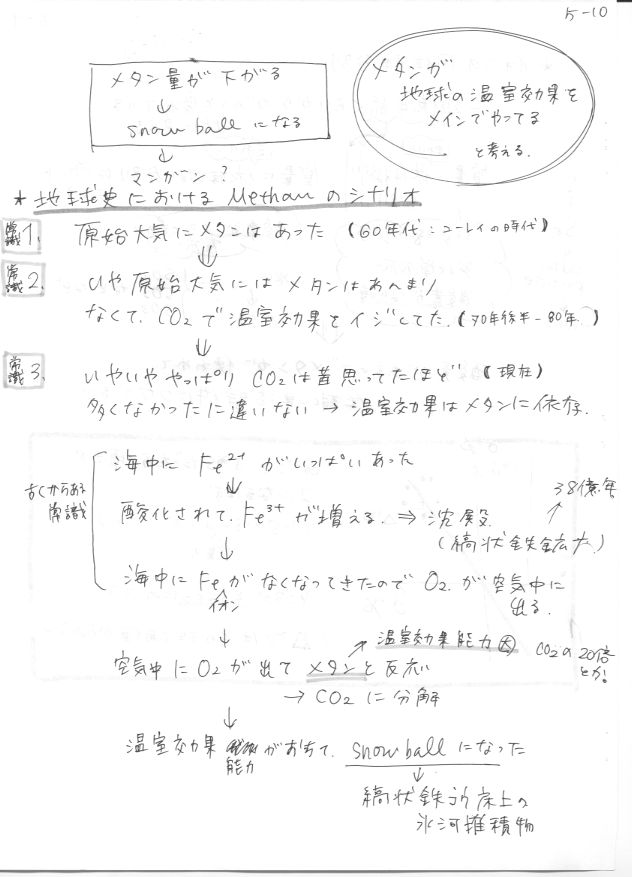 5-10
メタン量が下がる
↓
snow ballになる
↓
マンガン?
メタンが
地球の温室効果を
メインでやってる
と考える.
* 地球史における Methan のシナリオ
常識1. 原始大気にメタンはあった (60年代:ユーレイの時代)
⇓
常識2. いや原始大気にはメタンはあんまり
なくて、CO2で温室効果をイジしてた. (70年後半-80年 )
↓
常識3. いやいややっぱり CO2は昔思ってたほど (現在)
多くなかったに違いない → 温室効果はメタンに依存.
古くからある
常識
海中に Fe2+ がいっぱいあった
↓
酸化されて、Fe3+ が増える. ⇒ 沈殿
(縞状鉄鉱床)
38億年
↓
海中に Feイオンがなくなってきたので O2 が空気中に
出る.
↓
温室効果能力大
CO2の20倍
とか!
空気中に O2 が出て メタンと反応
→ CO2 に分解
↓
温室効果能力がおちて、snow ball になった
↓
縞状鉄こう床上の
氷河堆積物